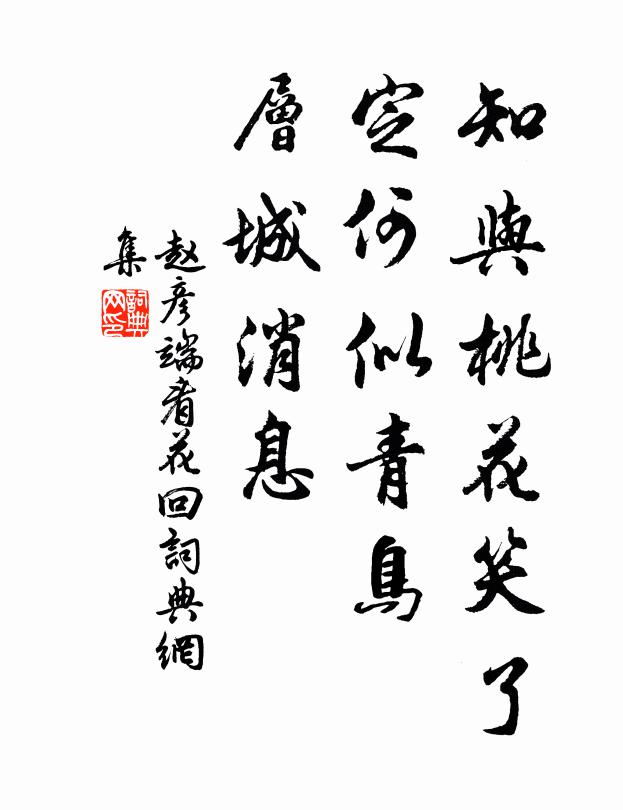 知與桃花笑了
定何似青鳥
層城消息
赵彦端看花回詞典網
集
詞典
网印